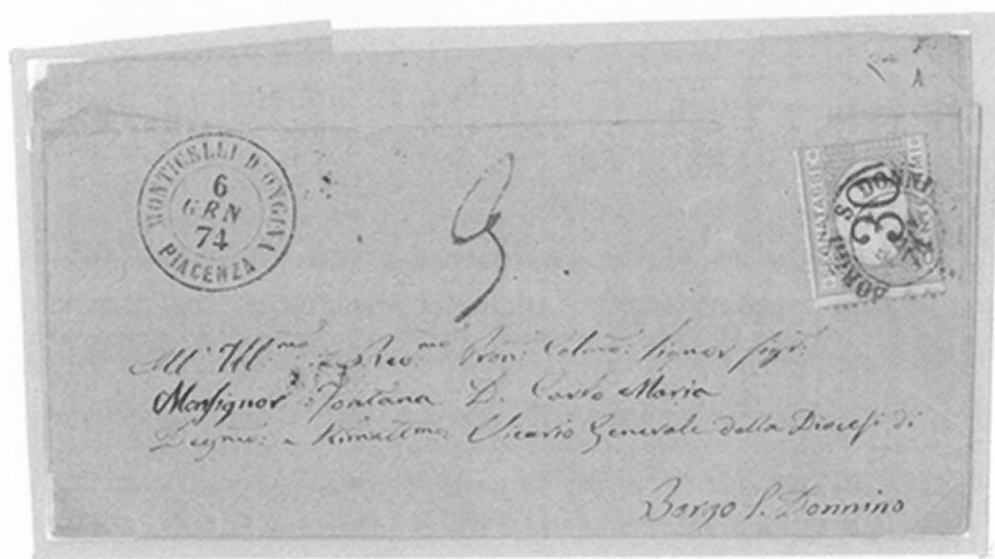 A
MONTICELLI D'ONGINA
6
GEN
74
PIACENZA
SEGNATASSE
30
BORGO S. DONNINO
All' Ill.mo e Rev.mo Pron: Colmo: Signor Sigr:
Monsignor Fontana D. Carlo Maria
Degmo: e Vicario Generale della Diocesi di
Borgo S. Donnino